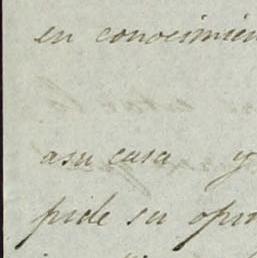 en conocimien
asu casa y
pide su opin